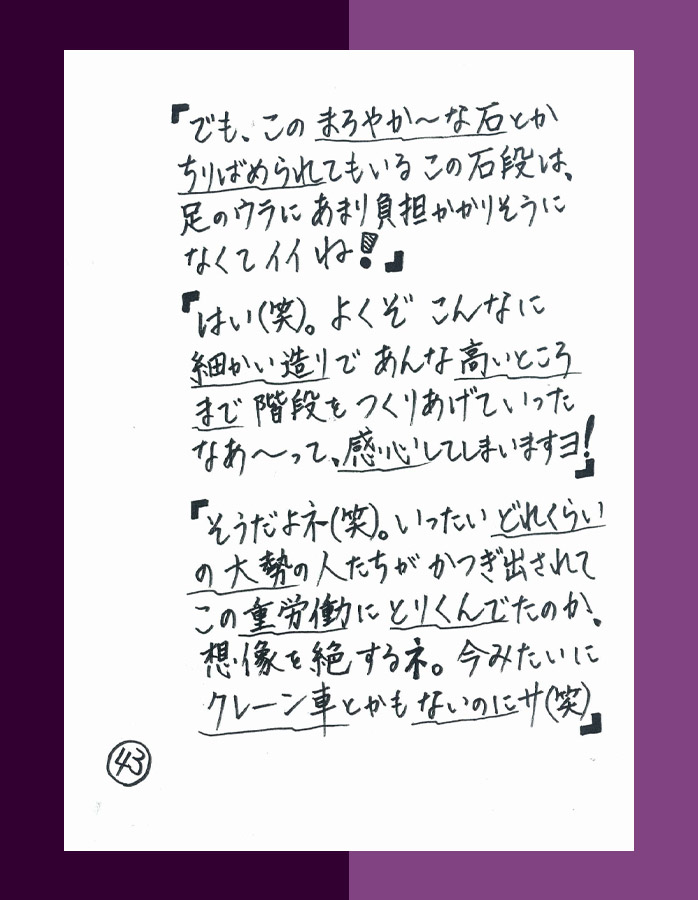 『でも、この まろやか〜な石とか
ちりばめられてもいる この石段は、
足のウラに あまり負担かかりそうに
なくてイイね！』
『はい(笑)。よくぞ こんなに
細かい造りで あんな高いところ
まで 階段を つくりあげていった
なあ〜って、感心してしまいますヨ！』
『そうだよネ(笑)。いったい どれくらい
の大勢の人たちが かつぎ出されて
この重労働に とりくんでたのか、
想像を絶するネ。今みたいに
クレーン車とかも ないのにサ(笑)』
43